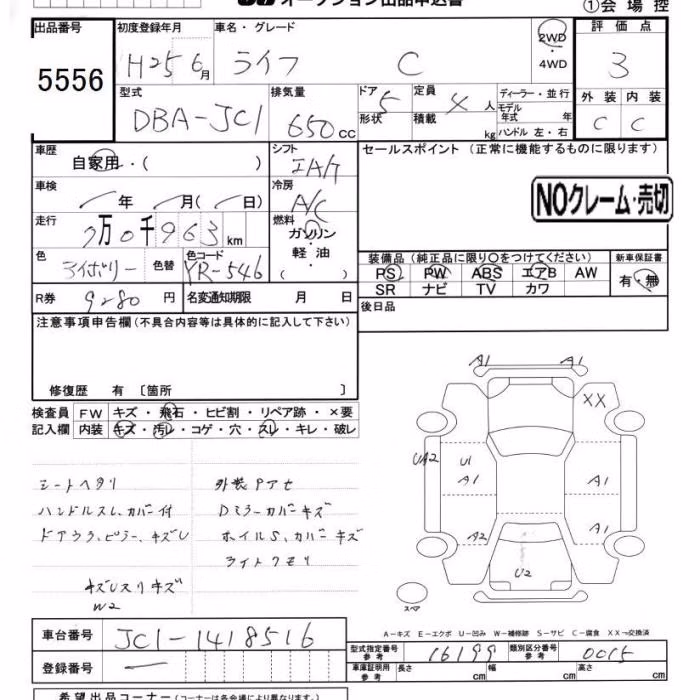 オークション出品申込書
①会場控
出品番号 5556
初度登録年月 H25 6月
車名・グレード ライフ C
2WD・4WD
評価点 3
型式 DBA-JC1
排気量 650cc
ドア 5
形状
定員 4人
積載 kg
ディーラー・並行
モデル年式 年
ハンドル 左・右
外装 C
内装 C
車歴 自家用・( )
シフト IA/T
セールスポイント (正常に機能するものに限ります)
車検 年 月( 日)
冷房 A/C
NOクレーム・売切
走行 7万0千963km
燃料 ガソリン・軽油・( )
色 アイボリー
色替
色コード YR-546
装備品 (純正品に限り○をつけてください)
新車保証書
PS PW ABS エアB AW
有・無
SR ナビ TV カワ
R券 9280円
名変通知期限 月 日
後日品
注意事項申告欄 (不具合内容等は具体的に記入して下さい)
修復歴 有 〔箇所 〕
検査員記入欄
FW キズ・飛石・ヒビ割・リペア跡・×要
内装 キズ・汚レ・コゲ・穴・スレ・キレ・破レ
シートヘタリ
ハンドルスレ、カバー付
ドアウラ、ピラー、キズU
キズUスリキズ
W2
外装Pアセ
Dミラーカバーキズ
ホイルS、カバーキズ
ライトクモリ
A1 A1
XX
UA2 U1
A1 A1
A2 A1
U2
スペア
A-キズ E-エクボ U-凹み W-補修跡 S-サビ C-腐食 XX-交換済
車台番号 JC1-1418516
型式指定番号 参考 16199
類別区分番号 参考 0015
登録番号 ―
車庫証明用 参考 長さ cm 幅 cm 高さ cm
希望出品コーナー (コーナーは各会場により異なります。)